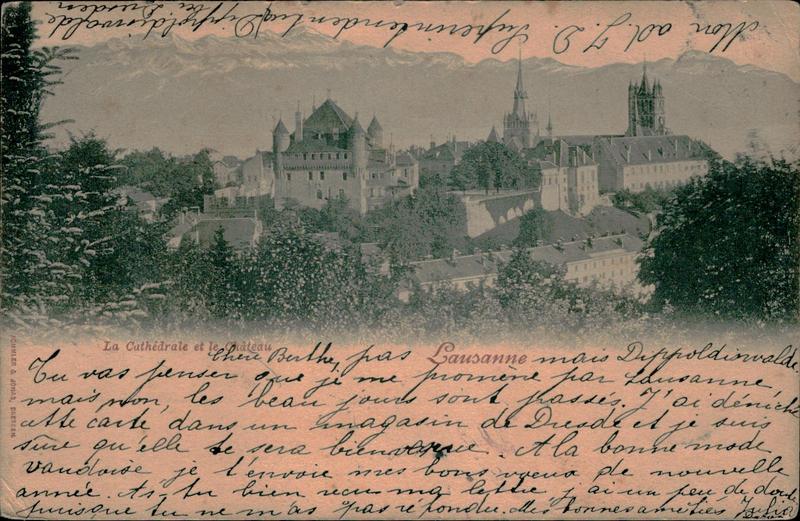 Mon ad. J. D. Superintendentur Dippoldiswalde
bei Dresden
La Cathédrale et le Château
Lausanne
Chère Berthe, pas mais Dippoldiswalde.
Tu vas penser que je me promène par Lausanne,
mais non, les beau jours sont passés. J'ai déniché
cette carte dans un magasin de Dresde et je suis
sûre qu'elle te sera bienvenue. A la bonne mode
vaudoise je t'envoie mes bons voeux de nouvelle
année. As-tu bien reçu ma lettre, j'ai un peu de doute
puisque tu ne m'as pas répondu. Mes bonnes amitiés Julia